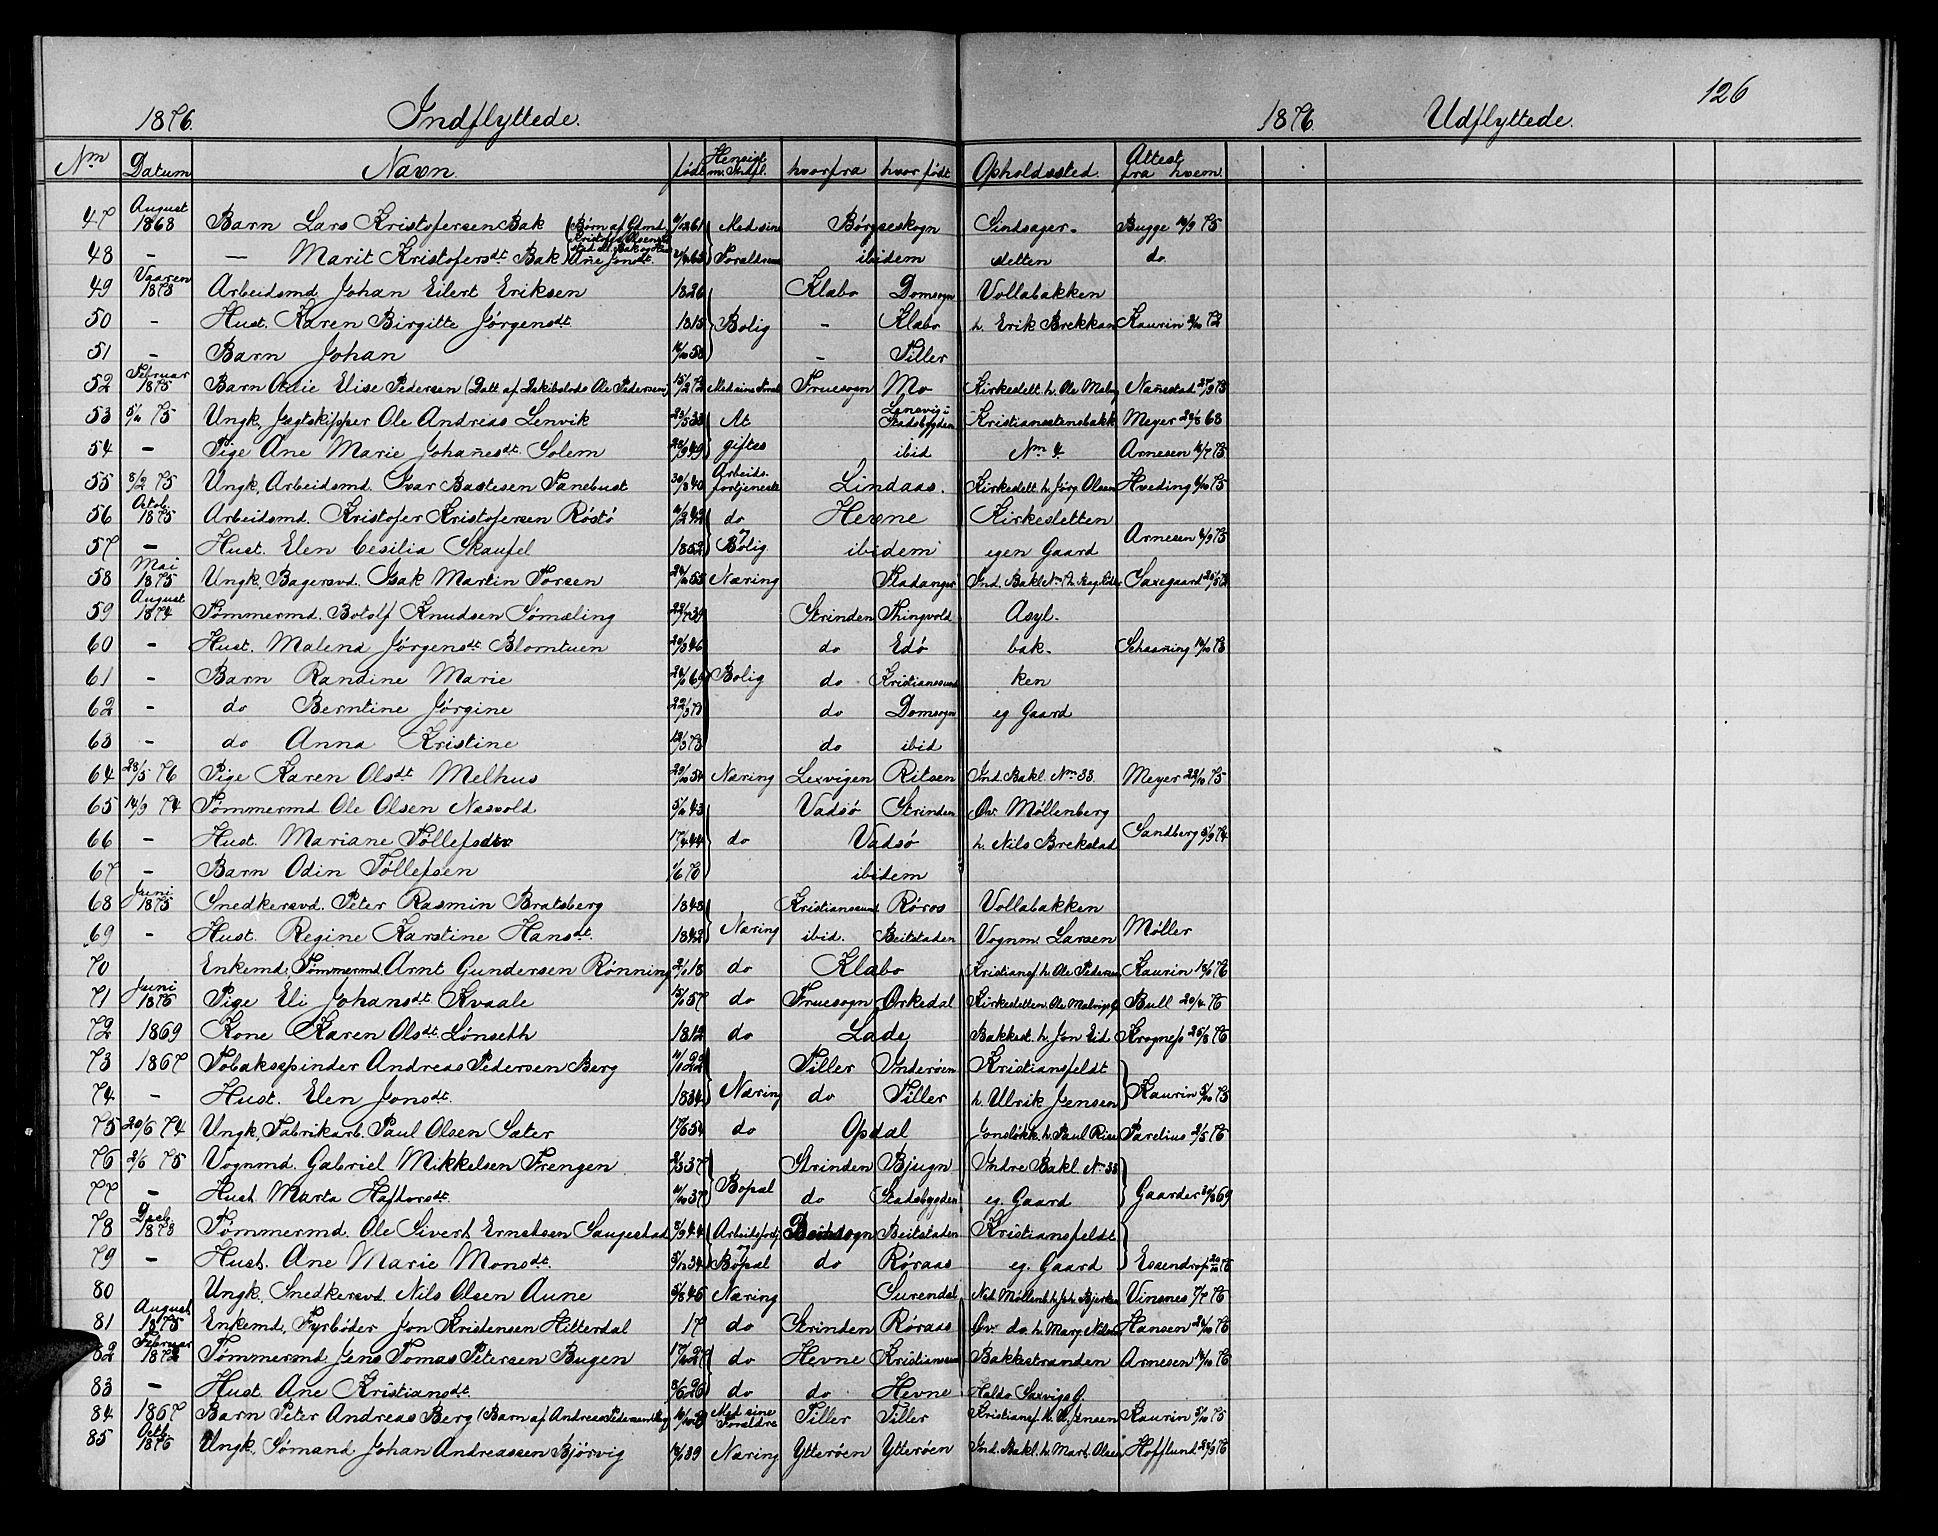 126
1876. Indflyttede. 1876. Udflyttede.
Nm Datum Navn født Hensigt m. Indfl. hvorfra hvor født Opholdssted. Attest fra hvem.
47 August 1868 Barn Lars Kristofersen Bak (Børn af Ane Jonsdt. 61 Med sine Børseskogn Sindsager- Bugge 75
48 - — Marit Kristofersdt. Bak 63 Foraldre ibidem sletten do.
49 Vaaren 1873 Arbeidsmd. Johan Eilert Eriksen 1826 Klabo Domsogn Vollabakken
50 - Hust. Karen Birgitte Jørgensdt. 1815 Bolig - Klabo h. Erik Brekkan Kaurin 72
51 - Barn Johan 58 - Tiller
52 Februar 1875 Barn Anie Elise Pedersen (Datt af Ole Pedersen) 15/2 72 Med sine Forald Fruesogn Mo Kirkeslett. h. Ole Malvig Nanestad 73
53 75 Ungk. Jægtskipper Ole Andreas Lenvik 23/5 33 At Lensvig i Stadsbygden Kristianstensbakk Meyer 68
54 - Pige Ane Marie Johanesdt. Solem 49 giftes ibid Nm 4 Arnesen 75
55 3/2 75 Ungk. Arbeidsmd. Ivar Bastesen Tanebust 40 Arbeidsfortjeneste Lindaas. Kirkeslett. h. Jørg. Olsen Hveding 75
56 Octob. 1875 Arbeidsmd. Kristofer Kristofersen Røstø 42 do Hevne Kirkesletten
57 - Hust. Elen Cesilia Skaufel 1852 Bolig ibidem egen Gaard Arnesen 75
58 Mai 1875 Ungk. Bagersvd. Isak Martin Torsen 55 Næring Stadanger Ind. Bakl. Saxegaard
59 August 1874 Tømmermd. Botolf Knudsen Sømæling 38 Strinden Thingvold Asyl-
60 - Hust. Malena Jørgensdt. Blomtuen 46 do Edø bak- Schaaning 73
61 - Barn Randine Marie 69 Bolig do Kristianssund ken
62 - do Berntine Jørgine do Domsogn eg. Gaard
63 - do Anna Kristine 73 do ibid
64 28/5 76 Pige Karen Olsdt. Melhus 54 Næring Lexvigen Ritsen Ind. Bakl. Nm 33. Meyer 75
65 14/9 74 Tømmermd. Ole Olsen Næsvold 43 Vadsø Strinden Øv. Møllenberg
66 - Hust. Mariane Tøllefsdtr 44 do Vadsø h. Nils Brekstad Sandberg 74
67 - Barn Odin Tøllefsen 1/6 70 ibidem
68 Juni 1875 Snedkersvd. Peter Rasmin Bratsberg 1843 Kristianssund Røros Vollabakken
69 - Hust. Regine Karstine Hansdt. 1842 Næring ibid. Beitstaden Vognm. Larsen Møller
70 Enkemd. Tømmermd. Arnt Gundersen Rønning 2/1 18 do Klabo Kristiansf. h. Ole Pedersen Kaurin 76
71 Juni 1876 Pige Eli Johansdt. Kvaale 57 do Fruesogn Ørkedal Kirkesletten Ole Malvigs G. Bull 20/4 76
72 1869 Kone Karen Olsdt. Lønseth 1812 do Lade Bakkest. h. Jon Eid Krogness 76
73 1867 Tobaksspinder Andreas Pedersen Berg 22 Tiller Inderøen Kristiansfeldt
74 - Hust. Elen Jonsdt. 1834 Næring do Tiller h. Ulrik Jensen Kaurin 75
75 20/6 74 Ungk. Fabrikarb. Paul Olsen Sæter 54 do Opdal Jonsløkk. h. Paul Rise Parelius 2/5 76
76 2/6 75 Vognmd. Gabriel Mikkelsen Trengen 37 Strinden Bjugn Indre Bakl. Nm 33
77 - Hust. Marta Haftorsdt. 37 Bopæl do Stadsbygden eg. Gaard Gaarder 69
78 Decb. 1873 Tømmermd. Ole Sivert Erntsen Saugestad 44 Arbeidsfortj. og Beitstaden Kristiansfeldt
79 - Hust. Ane Marie Monsdt. 34 Bopæl do Røraas eg. Gaard Essendrop 76
80 Ungk. Snedkersvd. Nils Olsen Aune 45 Næring Surendal Ned. Møllenb. h. Joh. Bjerkan Vinsnes 7/7 76
81 August 1875 Enkemd. Fyrbøder Jon Kristensen Hitterdal 17 do Strinden Røraas Øv. do. h. Marg. Nilsen Hansen 76
82 Februar 1872 Tømmermd. Jens Tomas Petersen Bugen 27 do Hevne Kristianssund Bakkestranden Arnesen 76
83 - Hust. Ane Kristiansdt. 26 do do Hevne Haldo Saxvigs G.
84 1867 Barn Peter Andreas Berg (Barn af Andreas Pedersen Berg) Med sine Foraldre Tiller Tiller Kristiansf. h. U. Jensen Kaurin 75
85 Octb. 1876 Ungk. Sømand Johan Andreassen Bjørvig 39 Næring Ytterøen Ytterøen Ind. Bakl. h. Mart. Olsen Hofflund 76